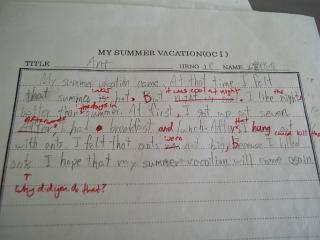 MY SUMMER VACATION (OC I)
TITLE Ant HRNO 1C NAME
My summer vacation came. At that time I felt
was it was cool at night
that summer hot, But I like the night
the days in
better than summer. At first, I got up at seven.
Afterwards that
After had breakfast and lunch. After I hung out
were could kill the
with ants. I felt that ants not big, because I killed
ants. I hope that my summer vacation will come again.
Why did you do that?